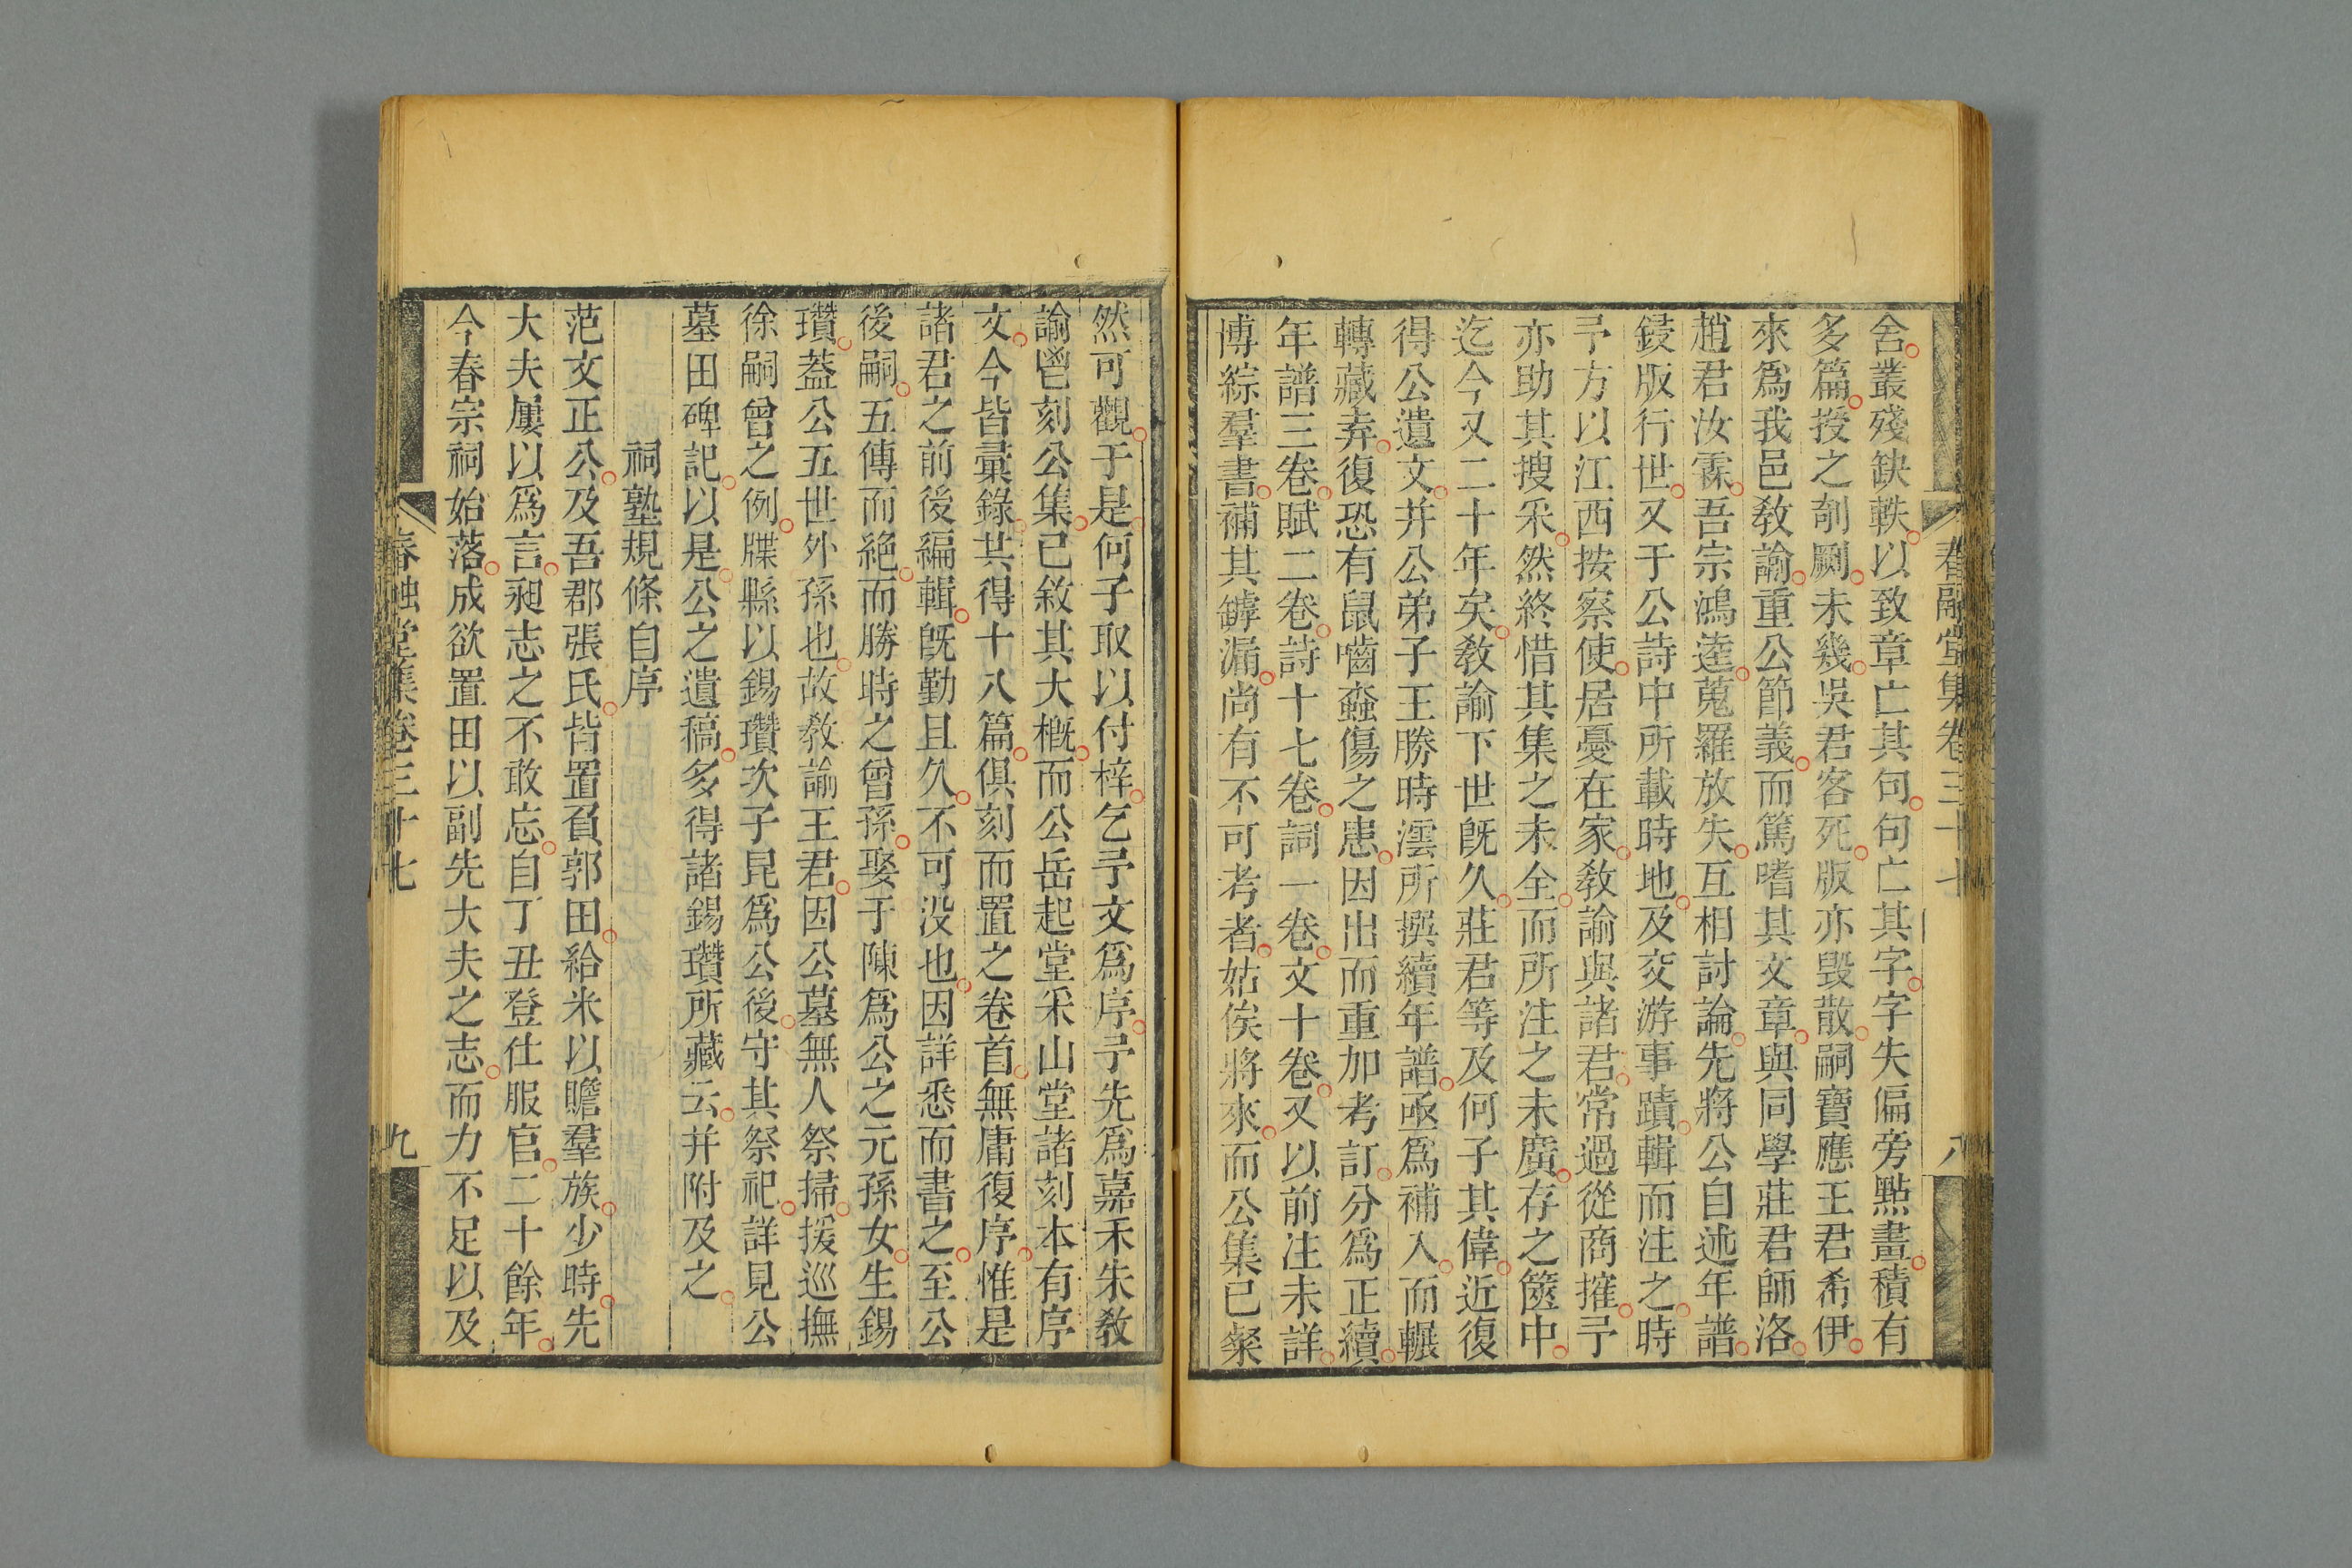 春融堂集卷三十七
八
舍叢殘缺軼以致章亡其句句亡其字字失偏旁㸃畫積有
多篇授之剞劂未幾吳君客死版亦毀散嗣寶應王君希伊
來爲我邑敎諭重公節義而篤嗜其文章與同學莊君師洛
趙君汝霖吾宗鴻逵蒐羅放失互相討論先將公自述年譜
鋟版行世又于公詩中所載時地及交游事蹟輯而注之時
予方以江西按察使居憂在家敎諭與諸君常過從商搉予
亦助其搜采然終惜其集之未全而所注之未廣存之篋中
迄今又二十年矣敎諭下世旣久莊君等及何子其偉近復
得公遺文并公弟子王勝時澐所撰續年譜亟爲補入而輾
轉藏弆復恐有鼠嚙蟲傷之患因出而重加考訂分爲正續
年譜三卷賦二卷詩十七卷詞一卷文十卷又以前注未詳
博綜羣書補其罅漏尚有不可考者姑俟將來而公集已粲
然可觀于是何子取以付梓乞予文爲序予先爲嘉禾朱敎
諭鬯刻公集已敘其大槪而公岳起堂采山堂諸刻本有序
文今皆彙錄共得十八篇俱刻而置之卷首無庸復序惟是
諸君之前後編輯旣勤且久不可没也因詳悉而書之至公
後嗣五傳而絶而勝時之曾孫娶于陳爲公之元孫女生錫
瓚蓋公五世外孫也故敎諭王君因公墓無人祭掃援巡撫
徐嗣曾之例牒縣以錫瓚次子昆爲公後守其祭祀詳見公
墓田碑記以是公之遺稿多得諸錫瓚所藏云并附及之
祠塾規條自序
范文正公及吾郡張氏皆置負郭田給米以贍羣族少時先
大夫屢以爲言昶志之不敢忘自丁丑登仕服官二十餘年
今春宗祠始落成欲置田以副先大夫之志而力不足以及
春融堂集卷三十七
九